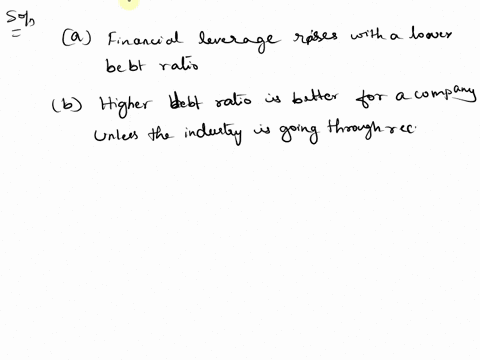 Sol
(a) Financial leverage rises with a lower
bebt ratio
(b) Higher debt ratio is better for a company
unless the industry is going through rec.